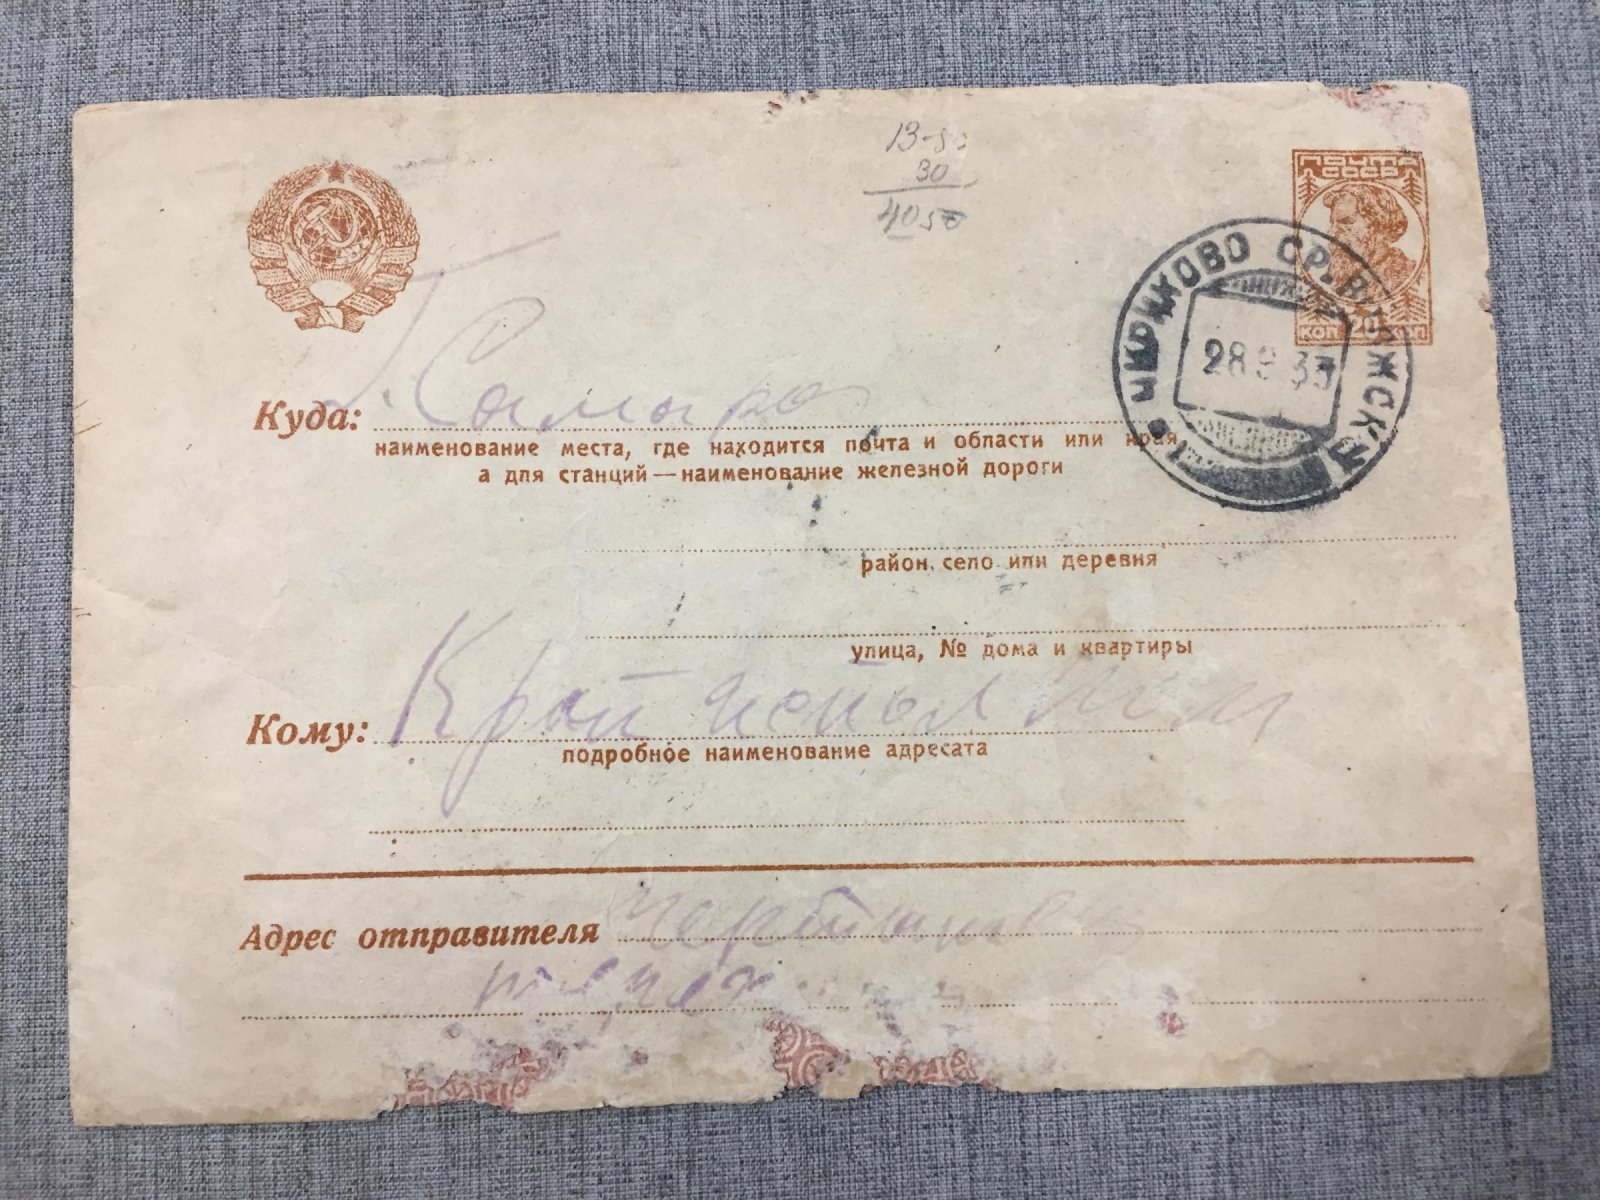 ПОЧТА
СССР
КОП 20 КОП
ЧИРИКОВО СР. ВОЛЖСК.
28 9 33
30
4050
Куда: г. Самара
наименование места, где находится почта и области или края
а для станций — наименование железной дороги
район, село или деревня
улица, № дома и квартиры
Кому: Край исполком
подробное наименование адресата
Адрес отправителя